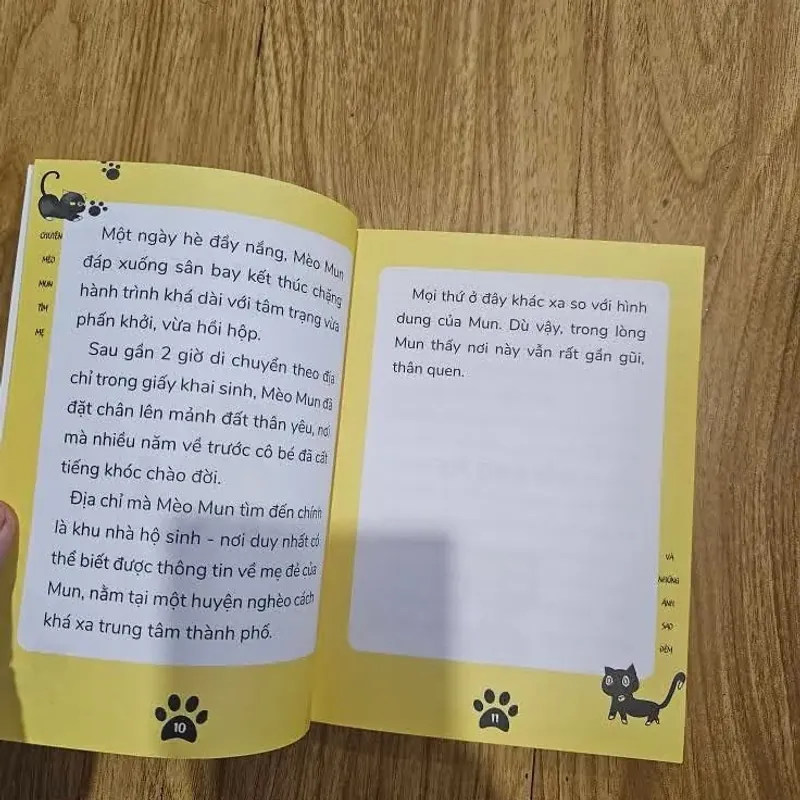 CHUYỆN
MÈO
MUN
TÌM
MẸ
Một ngày hè đầy nắng, Mèo Mun
đáp xuống sân bay kết thúc chặng
hành trình khá dài với tâm trạng vừa
phấn khởi, vừa hồi hộp.
Sau gần 2 giờ di chuyển theo địa
chỉ trong giấy khai sinh, Mèo Mun đã
đặt chân lên mảnh đất thân yêu, nơi
mà nhiều năm về trước cô bé đã cất
tiếng khóc chào đời.
Địa chỉ mà Mèo Mun tìm đến chính
là khu nhà hộ sinh - nơi duy nhất có
thể biết được thông tin về mẹ đẻ của
Mun, nằm tại một huyện nghèo cách
khá xa trung tâm thành phố.
10
Mọi thứ ở đây khác xa so với hình
dung của Mun. Dù vậy, trong lòng
Mun thấy nơi này vẫn rất gần gũi,
thân quen.
VÀ
NHỮNG
ÁNH
SAO
ĐÊM
11